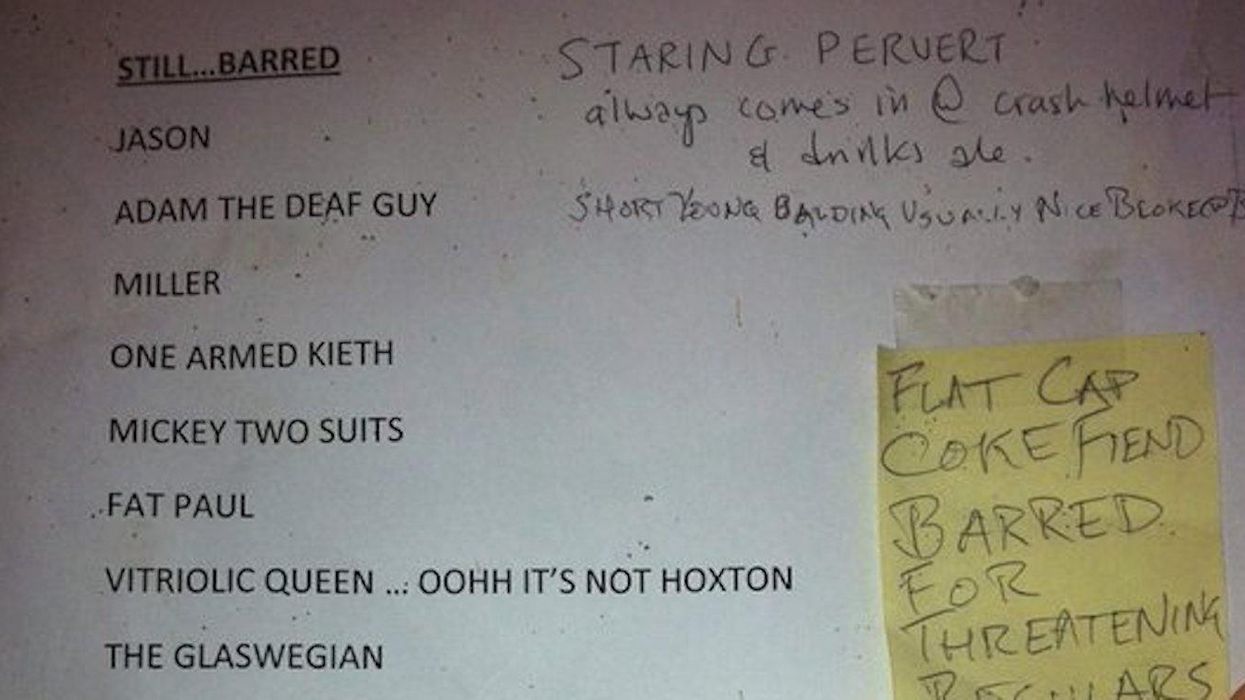 STILL...BARRED
JASON
ADAM THE DEAF GUY
MILLER
ONE ARMED KIETH
MICKEY TWO SUITS
FAT PAUL
VITRIOLIC QUEEN ... OOHH IT'S NOT HOXTON
THE GLASWEGIAN
STARING PERVERT
always comes in @ crash helmet
& drinks ale.
SHORT YOUNG BALDING USUALLY NICE BLOKE
FLAT CAP
COKE FIEND
BARRED
FOR
THREATENING
REGULARS